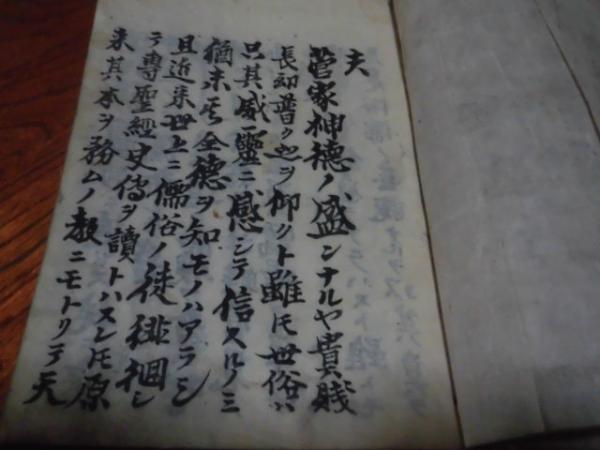 夫
菅家神徳ノ盛ンナルヤ貴賤
長幼普ク之ヲ仰クト雖𪜈世俗ハ
只其威霊ニ感シテ信スルノミ
猶未タ全徳ヲ知モノハアラシ
且近来世上ニ儒俗ノ徒徘徊シ
テ專聖經史傳ヲ讀トハスレ𪜈原
来其本ヲ務ムノ教ニモトリテ天